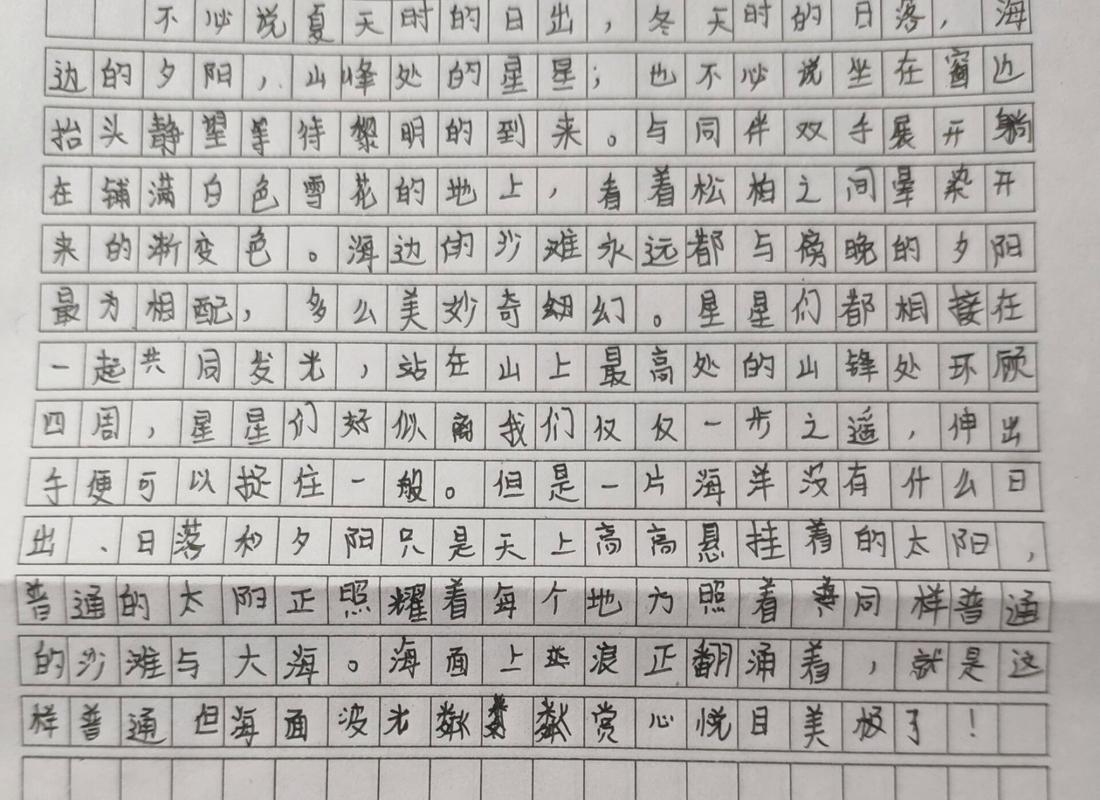 不必说夏天时的日出，冬天时的日落，海
边的夕阳，山峰处的星星；也不必说坐在窗边
抬头静望等待黎明的到来。与同伴双手展开躺
在铺满白色雪花的地上，看着松柏之间晕染开
来的渐变色。海边的沙难永远都与傍晚的夕阳
最为相配，多么美妙奇幻。星星们都相接在
一起共同发光，站在山上最高处的山锋处环顾
四周，星星们好似离我们仅仅一步之遥，伸出
手便可以捉住一般。但是一片海洋没有什么日
出、日落和夕阳只是天上高高悬挂着的太阳，
普通的太阳正照耀着每个地方照着同样普通
的沙滩与大海。海面上浪正翻涌着，就是这
样普通但海面波光粼粼赏心悦目美极了！